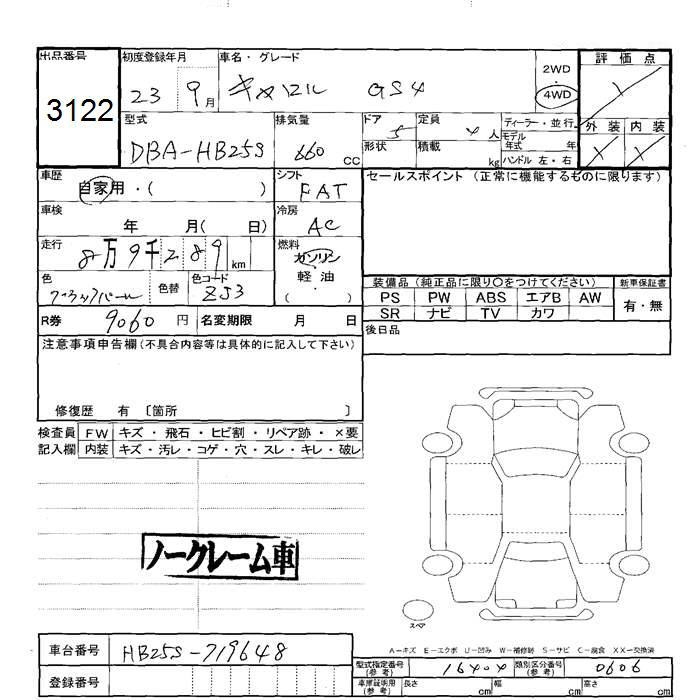 出品番号 初度登録年月 車名・グレード 評価点
3122 23 9月 キャロル GS4 2WD 4WD
型式 排気量 ドア 定員 ディーラー・並行 外装 内装
DBA-HB25S 660cc 5 4人 モデル年式 年
形状 積載 kg ハンドル 左・右
車歴 自家用・( ) シフト FAT セールスポイント (正常に機能するものに限ります)
車検 年 月( 日) 冷房 AC
走行 8万9千289km 燃料 ガソリン 軽油 ・( )
色 色替 色コード ZJ3 装備品 (純正品に限り〇をつけてください) 新車保証書
PS PW ABS エアB AW 有・無
SR ナビ TV カワ
R券 9060円 名変期限 月 日 後日品
注意事項申告欄(不具合内容等は具体的に記入して下さい)
修復歴 有 〔箇所 〕
検査員 FW キズ・飛石・ヒビ割・リペア跡・×要
記入欄 内装 キズ・汚レ・コゲ・穴・スレ・キレ・破レ
ノークレーム車
スペア
A-キズ E-エクボ U-凹み W-補修跡 S-サビ C-腐食 XX-交換済
車台番号 HB25S-719648 型式指定番号(参考) 16404 類別区分番号(参考) 0606
登録番号 車庫証明用(参考) 長さ cm 幅 cm 高さ cm